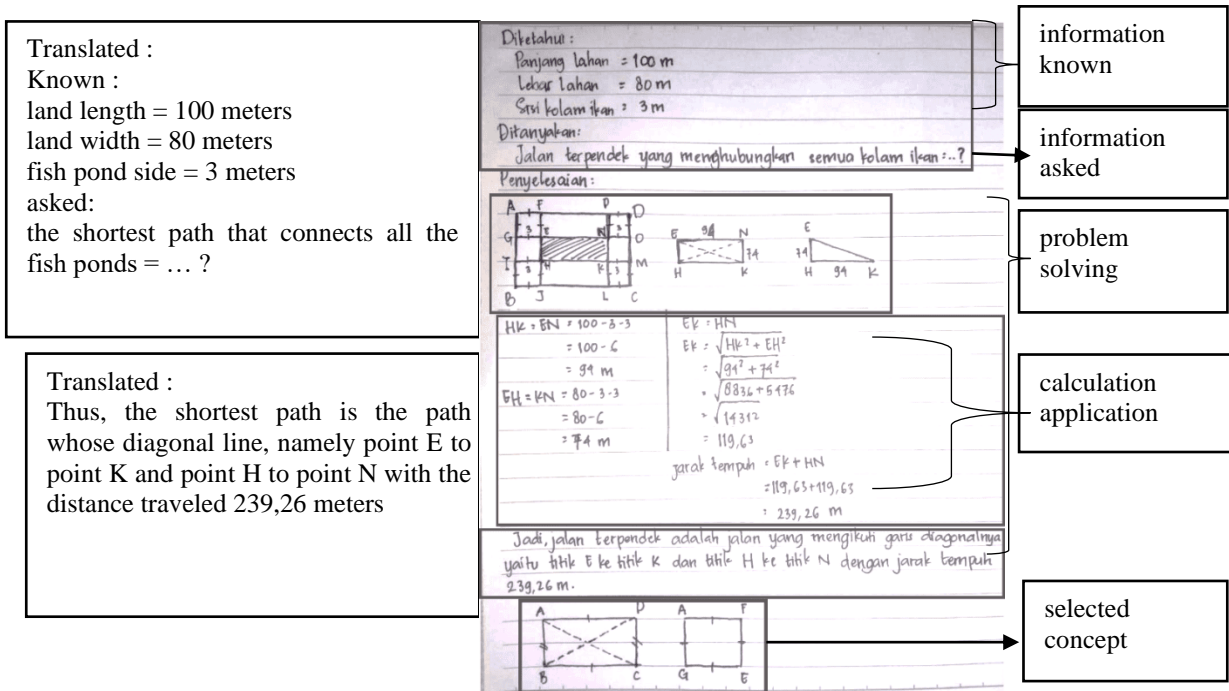 Translated :
Known :
land length = 100 meters
land width = 80 meters
fish pond side = 3 meters
asked:
the shortest path that connects all the
fish ponds = … ?
Translated :
Thus, the shortest path is the path
whose diagonal line, namely point E to
point K and point H to point N with the
distance traveled 239,26 meters
Diketahui :
Panjang lahan = 100 m
Lebar lahan = 80 m
Sisi kolam ikan = 3 m
Ditanyakan:
Jalan terpendek yang menghubungkan semua kolam ikan = ..?
Penyelesaian :
A F P D
G 3 E N 3 O
I 3 H K 3 M
B J L C
E 94 N
74
H K
E
74
H 94 K
HK = EN = 100-3-3
= 100-6
= 94 m
EH = KN = 80-3-3
= 80-6
= 74 m
EK = HN
EK = √HK² + EH²
= √94² + 74²
= √8836+5476
= √14312
= 119,63
jarak tempuh = EK + HN
= 119,63+119,63
= 239,26 m
Jadi, jalan terpendek adalah jalan yang mengikuti garis diagonalnya
yaitu titik E ke titik K dan titik H ke titik N dengan jarak tempuh
239,26 m.
A D
B C
A F
G E
information
known
information
asked
problem
solving
calculation
application
selected
concept